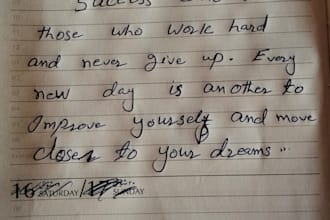 Success
those who work hard
and never give up. Every
new day is another to
Improve yourself and move
closer to your dreams..
SATURDAY / SUNDAY